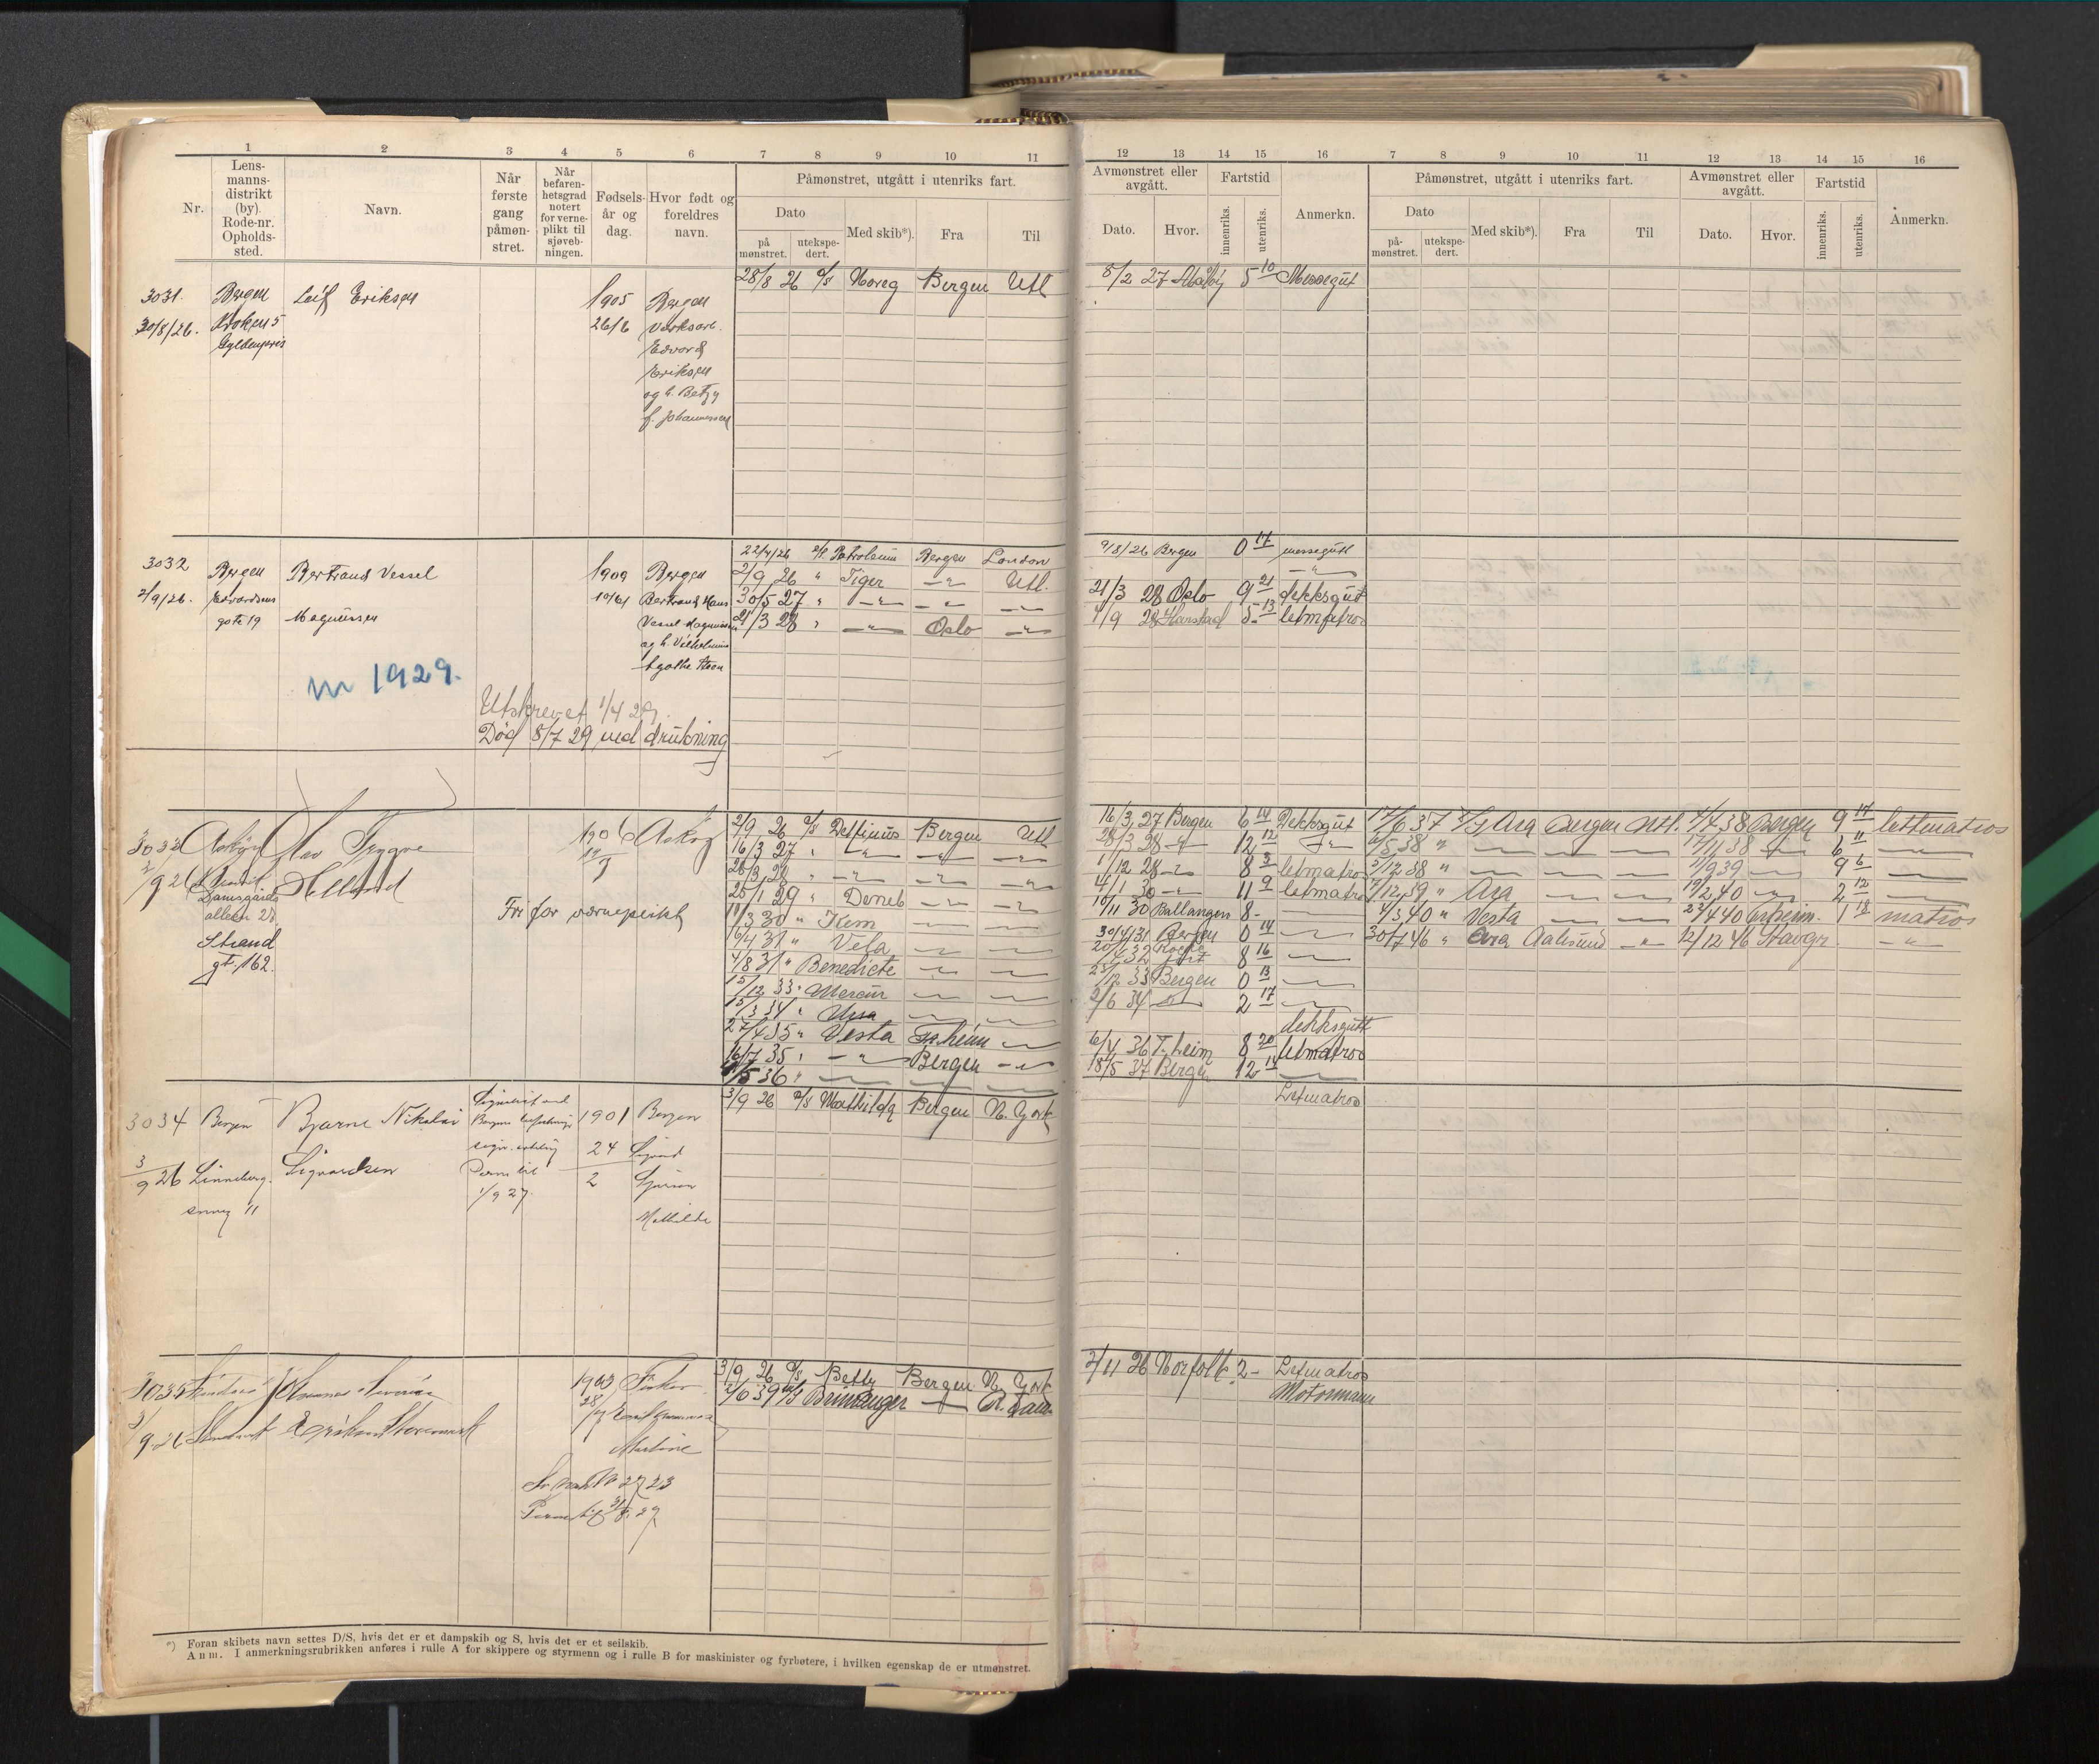 1 2 3 4 5 6 7 8 9 10 11
Nr.
Lens-
manns-
distrikt
(by).
Rode-nr.
Opholds-
sted.
Navn.
Når
første
gang
påmøn-
stret.
Når
befaren-
hetsgrad
notert
for verne-
plikt til
sjøveb-
ningen.
Fødsels-
år og
dag.
Hvor født og
foreldres
navn.
Påmønstret, utgått i utenriks fart.
Dato
på
mønstret.
utekspe-
dert.
Med skib*).
Fra
Til
12 13 14 15 16 7 8 9 10 11 12 13 14 15 16
Avmønstret eller
avgått.
Dato.
Hvor.
Fartstid
innenriks.
utenriks.
Anmerkn.
Påmønstret, utgått i utenriks fart.
Dato
på-
mønstret.
utekspe-
dert.
Med skib*).
Fra
Til
Avmønstret eller
avgått.
Dato.
Hvor.
Fartstid
innenriks.
utenriks.
Anmerkn.
3031. Bergen Leif Eriksen 1905 Bergen
30/8/26. Kroken 5 26/6 Verksarb.
Gyldenpris Edvard
Eriksen
og h. Betzy
f. Johannessen
28/8 26 D/S Noreg Bergen Utl
8/2 27 5 10 Messegut
3032 Bergen Bertrand Vessel 1909 Bergen
2/9/26. Edvardsens Bertrand Hans
gate 19 Magnussen Vessel Magnussen
og h. Vilhelmine
Agathe Steen
m 1929.
Utskrevet 1/4 29.
Død 8/7 29 ved drukning
22/7/26 D/S Petroleum Bergen London
2/9 26 " Tiger —"— Utl.
30/5 27 " —"— —"— —"—
21/3 28 " —"— Oslo —"—
9/8/26 Bergen 0 17 messegutt
—"—
21/3 28 Oslo 9 21 dekksgut
4/9 28 Harstad 5 13 letmatros
3033 Askøy Olav Trygve 1906 Askøy
2/9 26 Helland
Damsgårds
alleen 23
Strand
gt. 162.
Fri for værneplikt
2/9 26 D/S Delfinus Bergen Utl
16/3 27 " —"— —"— —"—
28/3 28 " —"— —"— —"—
25/1 29 " Deneb —"— —"—
11/3 30 " Kem — —
16/4 31 " Vela — —
4/8 31 " Benedicte — —
15/12 33 " Mercur — —
15/3 34 " Ursa — —
27/4 35 " Vesta Tr.heim —
16/7 35 " —"— Bergen —"—
/5 36 " — — —
16/3 27 Bergen 6 14 Dekksgut
28/3 28 —"— 12 12 —"—
1/12 28 —"— 8 3 letmatros
4/1 30 —"— 11 9 letmatros
10/11 30 Ballangen 8 - —
30/4 31 Bergen 0 14 —
20/4 32 8 16 —
23/12 33 Bergen 0 13 —
2/6 34 — 2 17 —
dekksgutt
6/4 36 T.heim 8 20 letmatros
18/5 37 Bergen 12 14 —
17/6 37 D/S Ara Bergen Utl. 4/4 38 Bergen 9 17 lettmatros
/5 38 " — — — 17/11 38 — 6 11 —
5/12 38 " — — — 11/9 39 — 9 6 —
7/12 39 " Ara — — 19/2 40 — 2 12 —
4/3 40 " Vesta — — 22/4 40 Tr.heim. 1 18 matros
30/7 46 " Ara Aalesund —"— 12/12 46 Stavgr. —"—
3034 Bergen Bjarne Nikolai 1901 Bergen
3/9 26 Linneberg- Sigvardsen 24/2 Sigvard
svei 11 Mathilde
Perm til
1/9 27.
3/9 26 D/S Mathilda Bergen N. York
Letmatros
3035 1903
/9 26
Martine
3/9 26 D/S Betty Bergen N. York
2/6 39 M/S Brimanger —"— R.dam
2/11 26 Norfolk 2 - Letmatros
Motormann
*) Foran skibets navn settes D/S, hvis det er et dampskib og S, hvis det er et seilskib.
Anm. I anmerkningsrubrikken anføres i rulle A for skippere og styrmenn og i rulle B for maskinister og fyrbøtere, i hvilken egenskap de er utmønstret.